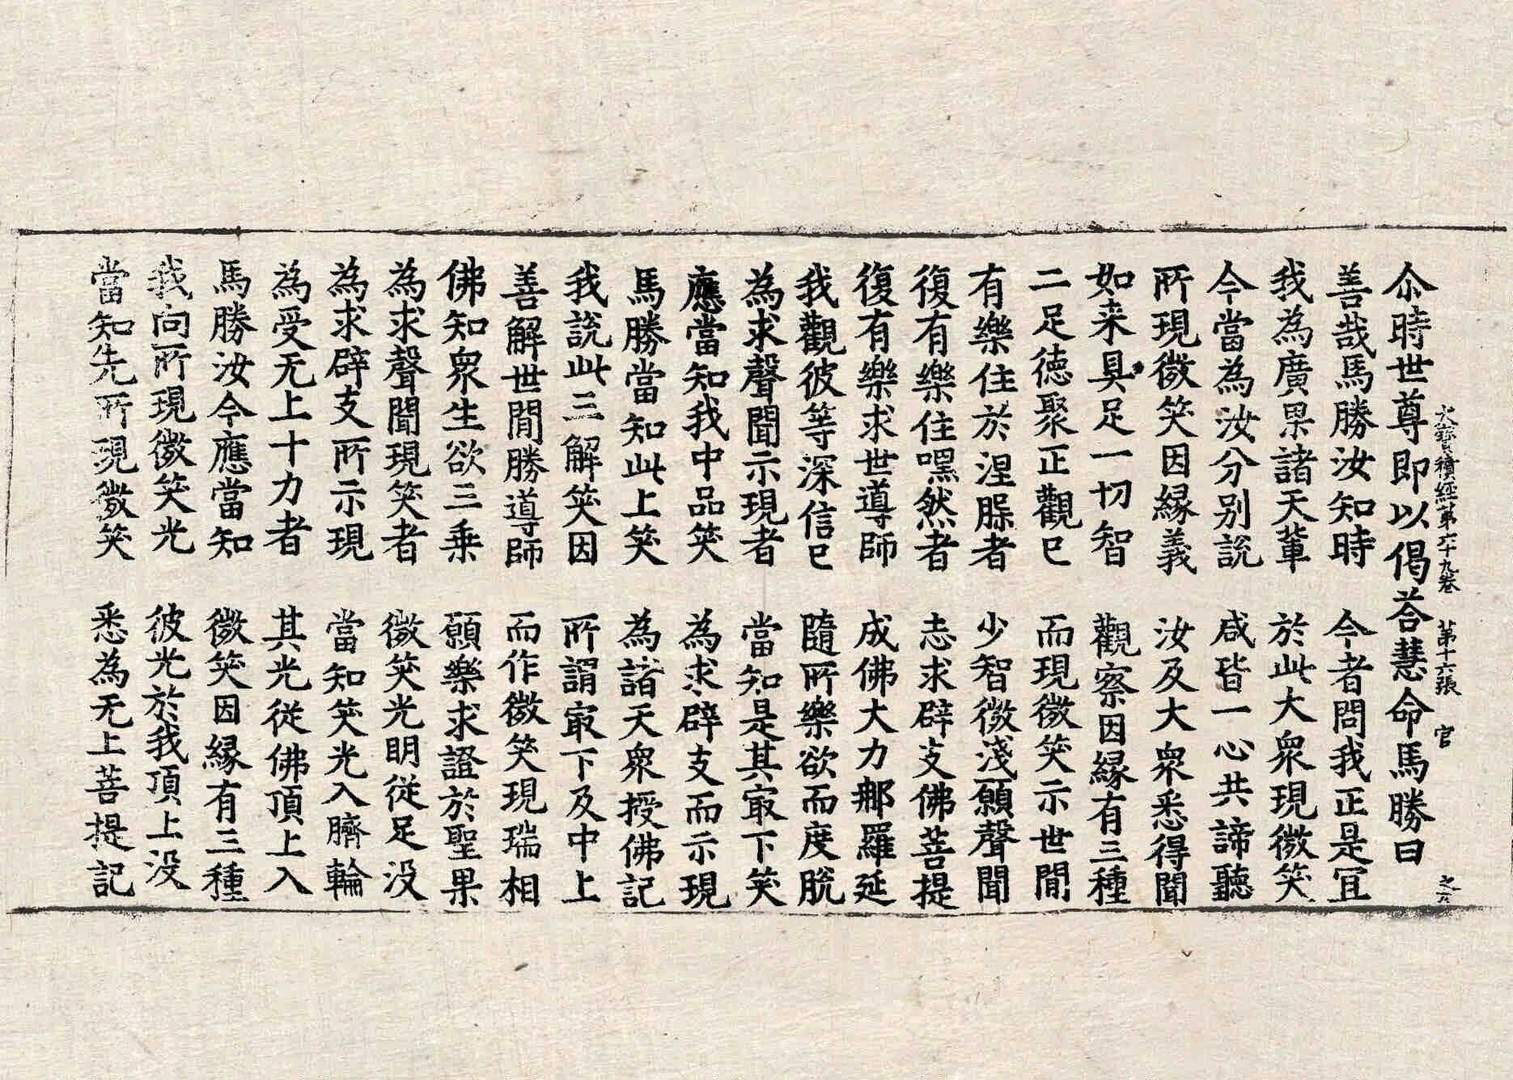 大寶積經第六十九卷　第十六張　官
尒時世尊即以偈荅慧命馬勝曰
善哉馬勝汝知時　今者問我正是冝
我為廣果諸天軰　於此大衆現微笑
今當為汝分别說　咸皆一心共諦聽
所現微笑因縁義　汝及大衆悉得聞
如来具足一切智　觀察因縁有三種
二足德聚正觀已　而現微笑示世間
有樂住於涅槃者　少智微淺願聲聞
復有樂住嘿然者　志求辟支佛菩提
復有樂求世導師　成佛大力郍羅延
我觀彼等深信已　隨所樂欲而度脫
為求聲聞示現者　當知是其㝡下笑
應當知我中品笑　為求辟支而示現
馬勝當知此上笑　為諸天衆授佛記
我說此三解笑因　所謂㝡下及中上
善解世間勝導師　而作微笑現瑞相
佛知衆生欲三乗　願樂求證於聖果
為求聲聞現笑者　微笑光明從足没
為求辟支所示現　當知笑光入臍輪
為受无上十力者　其光從佛頂上入
馬勝汝今應當知　微笑因縁有三種
我向所現微笑光　彼光於我頂上没
當知先所現微笑　悉為无上菩提記